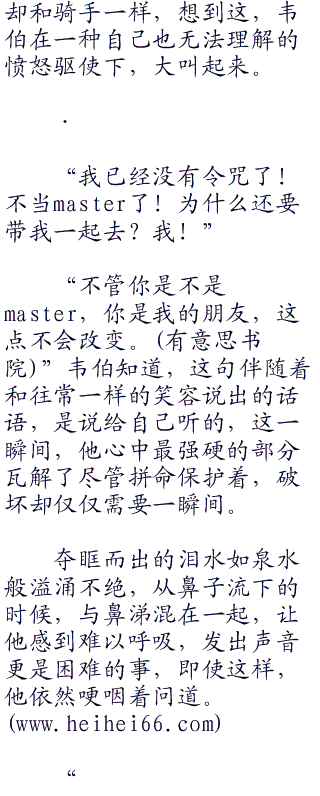 却和骑手一样，想到这，韦
伯在一种自己也无法理解的
愤怒驱使下，大叫起来。
.
“我已经没有令咒了！
不当master了！为什么还要
带我一起去？我！”
“不管你是不是
master，你是我的朋友，这
点不会改变。(有意思书
院)”韦伯知道，这句伴随着
和往常一样的笑容说出的话
语，是说给自己听的，这一
瞬间，他心中最强硬的部分
瓦解了尽管拼命保护着，破
坏却仅仅需要一瞬间。
夺眶而出的泪水如泉水
般溢涌不绝，从鼻子流下的
时候，与鼻涕混在一起，让
他感到难以呼吸，发出声音
更是困难的事，即使这样，
他依然哽咽着问道。
(www.heihei66.com)
“